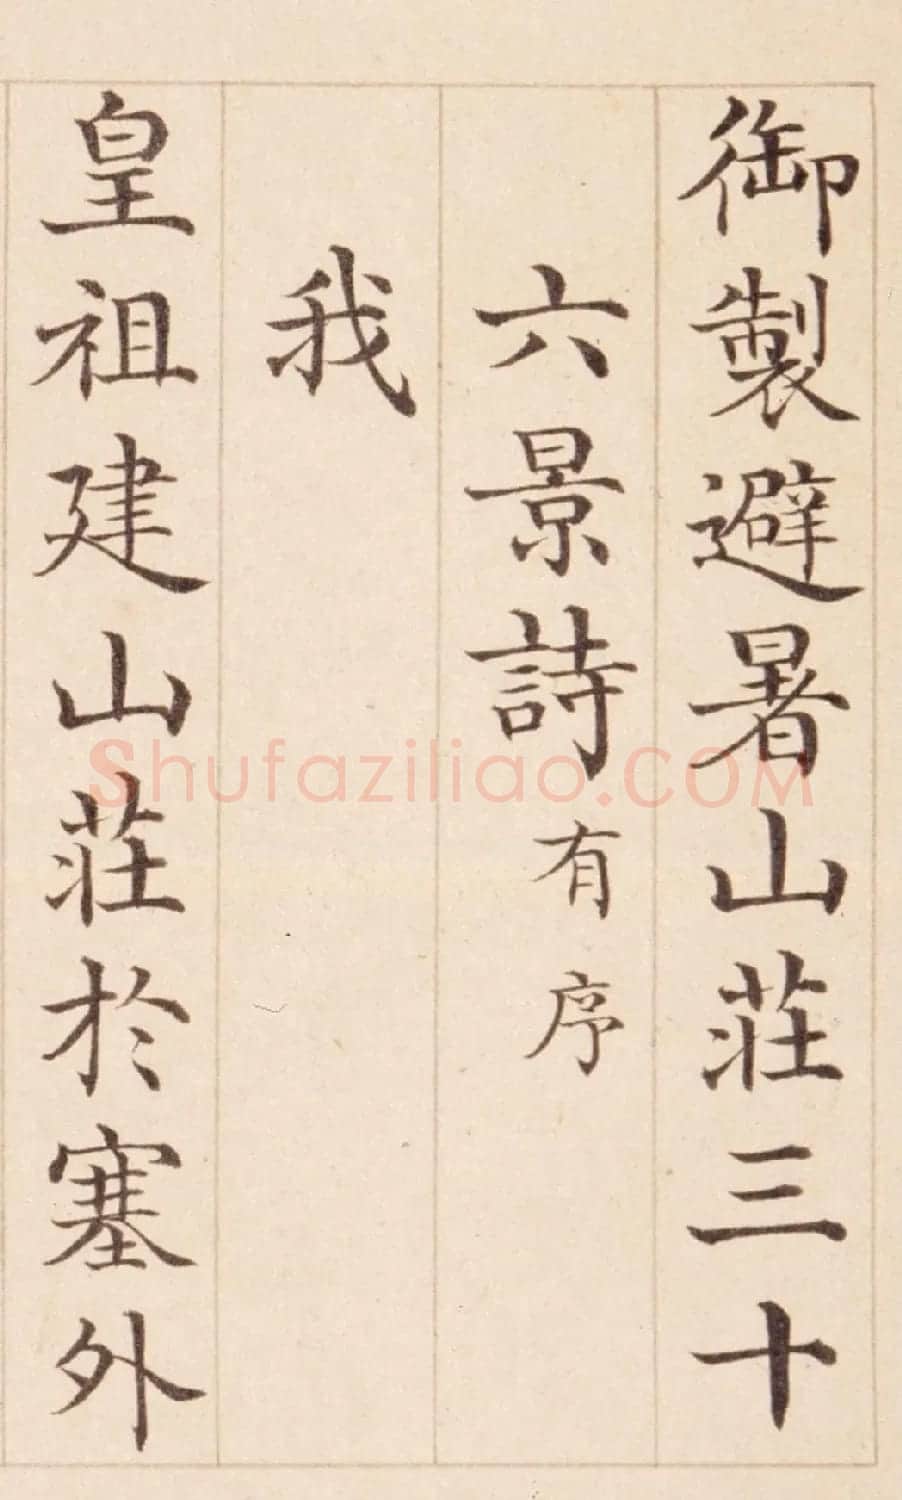 御製避暑山莊三十
六景詩有序
我
皇祖建山莊於塞外
Shufaziliao.COM